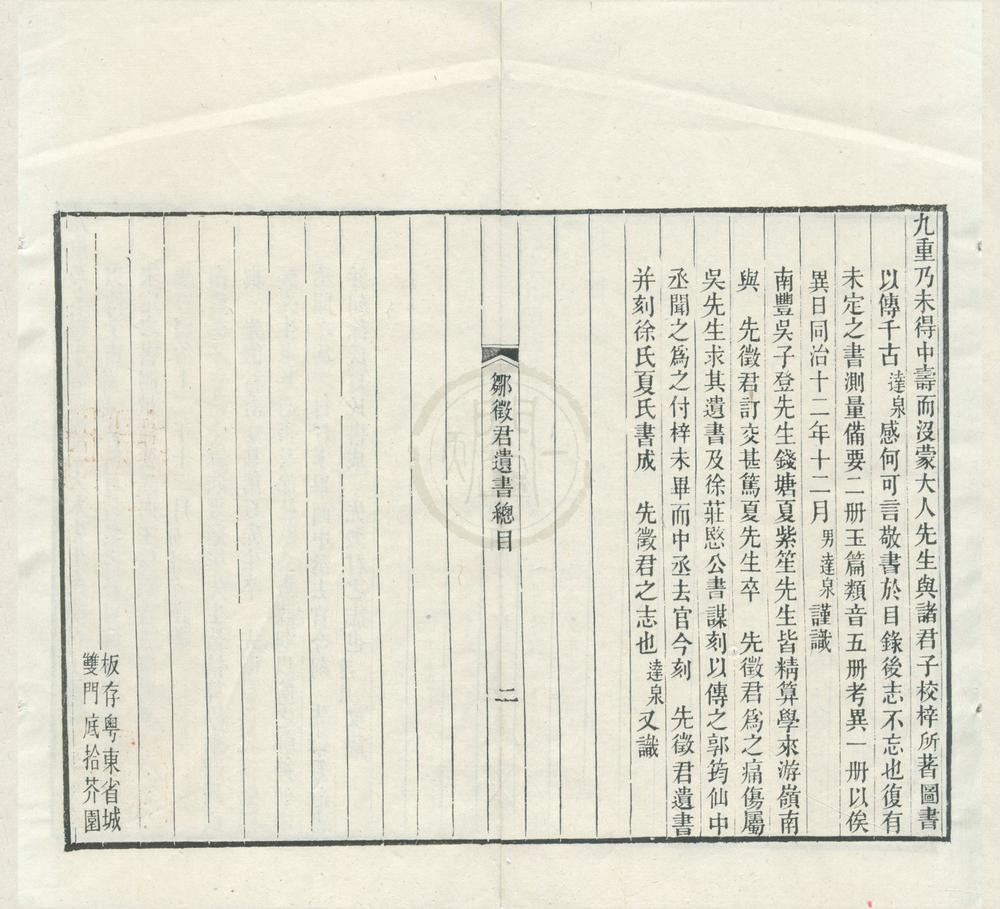 九重乃未得中壽而沒蒙大人先生與諸君子校梓所著圖書
以傳千古達泉感何可言敬書於目錄後志不忘也復有
未定之書測量備要二册玉篇類音五册考異一册以俟
異日同治十二年十二月男達泉謹識
南豐吳子登先生錢塘夏紫笙先生皆精算學來游嶺南
與　先徵君訂交甚篤夏先生卒　先徵君爲之痛傷屬
吳先生求其遺書及徐莊愍公書謀刻以傳之郭筠仙中
丞聞之爲之付梓未畢而中丞去官今刻　先徵君遺書
并刻徐氏夏氏書成　先徵君之志也達泉又識
鄒徵君遺書總目
二
板存粤東省城
雙門底拾芥園